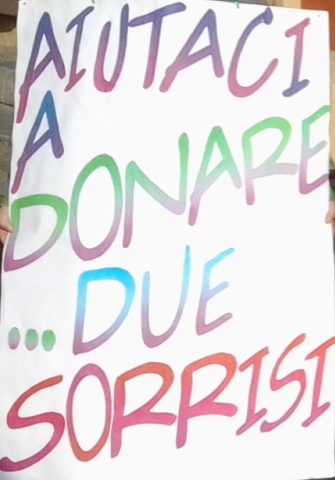 AIUTACI
A
DONARE
...DUE
SORRISI